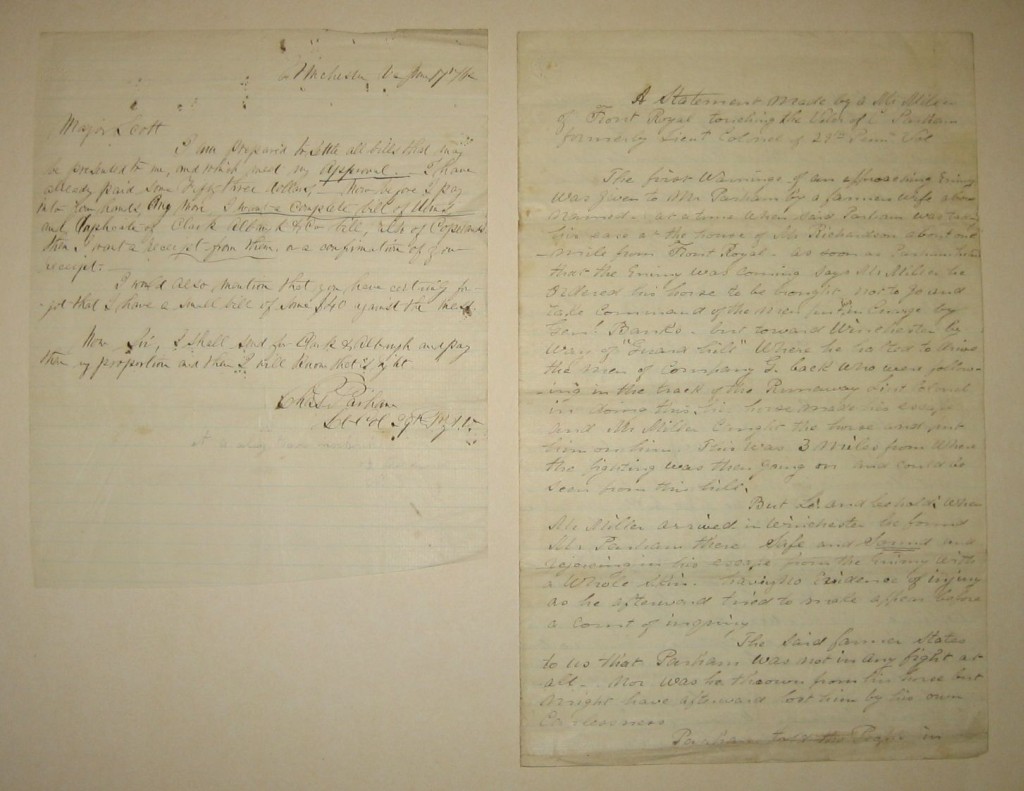 Winchester Va Jun 17th /62
Major Scott
I am prepared to settle all bills that may
be presented to me, and which meet my Approval. I have
already paid some fifty three dollars. Now before I pay
into your hands, any more I want a Complete bill of
and, duplicate of Clark bill,
then I want a receipt from them, as a confirmation of your
receipt:
I would also, mention that you have certainly for-
-got that I have a small bill of some $40 against the mess
Now Sir, I shall send for Clark & and pay
them my proportion and then I will know that it's right
Chas Parham
Lt Col 29th P.V.
A Statement made by a Mr Milder
of Front Royal touching the Parham
formerly Lieut Colonel of 29th Penn Vol
The first Warnings of an approaching Enemy
Was given to Mr Parham by a farmers Wife
at a time when said Parham was
his ease at the house of Mr Richardson about one
mile from Front Royal - as soon as
that the Enemy was coming says Mr Milder he
Ordered his horse to be brought not to go and
take command of the men in his charge by
Genl Banks - but toward Winchester by
way of "Guard hill" Where he halted to drive
the men of Company G. back who were follow-
-ing in the track of the Runaway Lieut Colonel
in doing this, his horse made his escape
and Mr Milder Caught the horse and put
him on him. This was 3 miles from Where
the fighting was then going on and could be
seen from this hill.
But Lo and behold When
Mr Milder arrived in Winchester he found
Mr Parham there Safe and Sound and
rejoicing in his escape from the Enemy with
a Whole Skin. having no Evidence of injury
as he afterward tried to make appear before
a Court of inquiry
The said farmer States
to us that Parham was not in any fight at
all - Nor was he thrown from his horse but
might have afterward lost him by his own
Carlessness
Parham told the People in